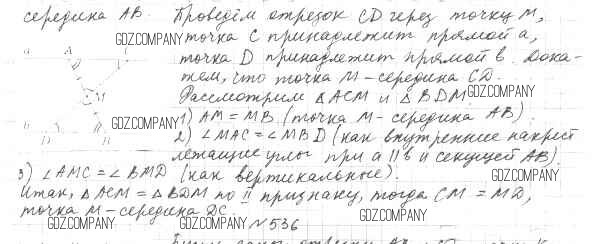 середина АВ. Проведём отрезок CD через точку М,
GDZ.COMPANY точка С принадлежит прямой а,
a A GDZ.COMPANY
точка D принадлежит прямой в. Дока-
жем, что точка М - середина CD.
M Рассмотрим △ ACM и △ BDM GDZ.COMPANY
GDZ.COMPANY 1) AM = MB (точка М - середина АВ)
B 2) ∠MAC = ∠MBD (как внутренние накрест
лежащие углы при a || b и секущей АВ).
3) ∠AMC = ∠BMD (как вертикальные). GDZ.COMPANY
Итак, △ ACM = △ BDM по II признаку, тогда CM = MD,
точка М - середина DC.
GDZ.COMPANY GDZ.COMPANY №536 GDZ.COMPANY